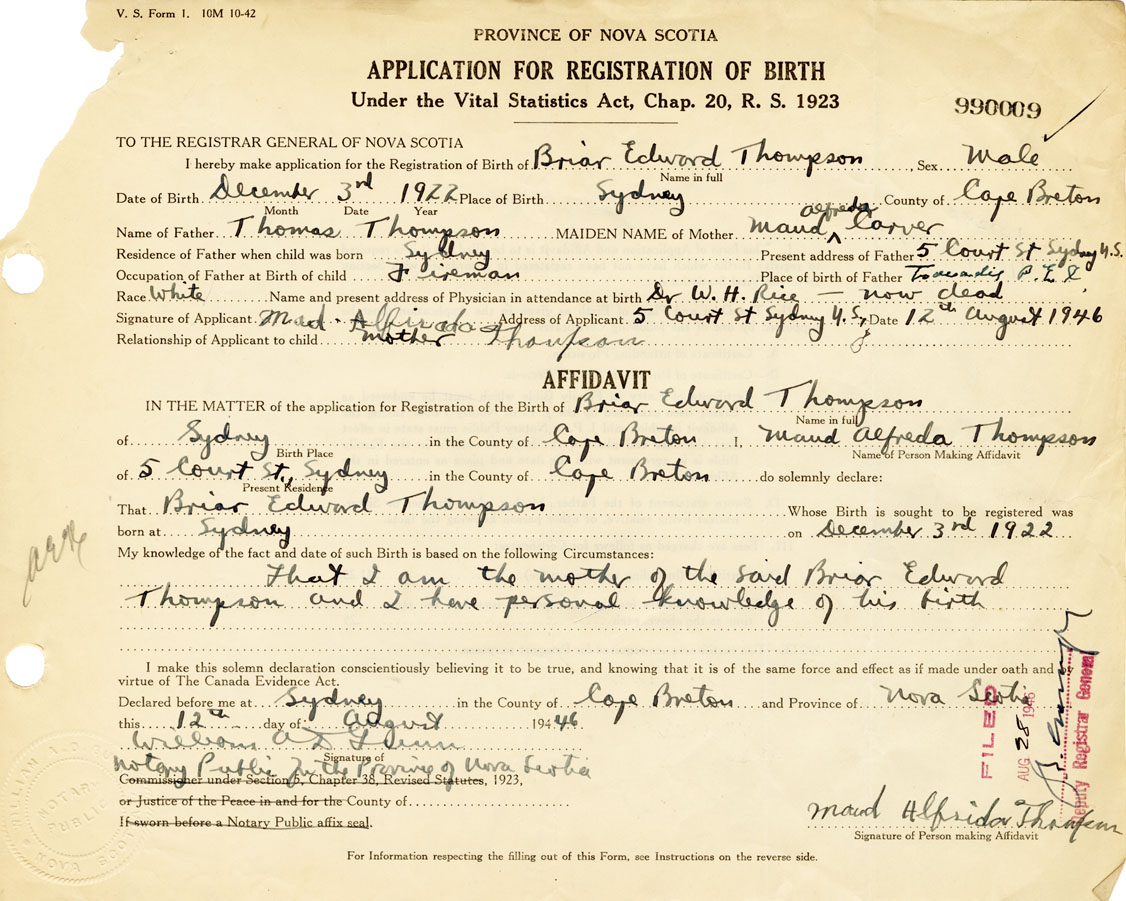 V. S. Form 1. 10M 10-42
PROVINCE OF NOVA SCOTIA
APPLICATION FOR REGISTRATION OF BIRTH
Under the Vital Statistics Act, Chap. 20, R. S. 1923
990009
TO THE REGISTRAR GENERAL OF NOVA SCOTIA
I hereby make application for the Registration of Birth of Briar Edward Thompson, Sex Male
Name in full
Date of Birth December 3rd 1922 Place of Birth Sydney County of Cape Breton
Month Date Year
Name of Father Thomas Thompson MAIDEN NAME of Mother Maud Alfreda Carver
Residence of Father when child was born Sydney Present address of Father 5 Court St Sydney N.S.
Occupation of Father at Birth of child Fireman Place of birth of Father P.E.I.
Race White Name and present address of Physician in attendance at birth Dr W. H. Rice — now dead
Signature of Applicant Maud Alfrida Address of Applicant 5 Court St Sydney N.S. Date 12th August 1946
Relationship of Applicant to child mother Thompson
AFFIDAVIT
IN THE MATTER of the application for Registration of the Birth of Briar Edward Thompson
Name in full
of Sydney in the County of Cape Breton I, Maud Alfreda Thompson
Birth Place Name of Person Making Affidavit
of 5 Court St., Sydney in the County of Cape Breton do solemnly declare:
Present Residence
That Briar Edward Thompson Whose Birth is sought to be registered was
born at Sydney on December 3rd 1922
My knowledge of the fact and date of such Birth is based on the following Circumstances:
That I am the mother of the said Briar Edward
Thompson and I have personal knowledge of his birth
I make this solemn declaration conscientiously believing it to be true, and knowing that it is of the same force and effect as if made under oath and by
virtue of The Canada Evidence Act.
Declared before me at Sydney in the County of Cape Breton and Province of Nova Scotia
this 12th day of August 194 46
William A D
Signature of
Notary Public in the Province of Nova Scotia
Commissioner under Section 5, Chapter 38, Revised Statutes, 1923,
or Justice of the Peace in and for the County of
If sworn before a Notary Public affix seal.
FILED
AUG 28 1946
Deputy Registrar General
NOTARY PUBLIC
NOVA SCOTIA
Maud Alfrida Thompson
Signature of Person making Affidavit
For Information respecting the filling out of this Form, see Instructions on the reverse side.